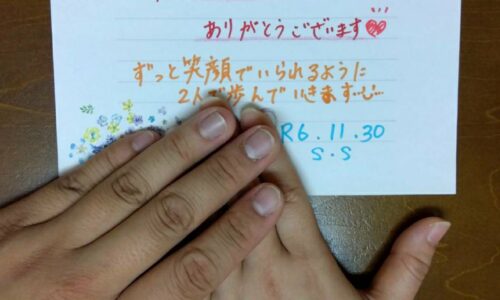 ありがとうございます
ずっと笑顔でいられるように
2人で歩んでいきます
R6.11.30
S.S